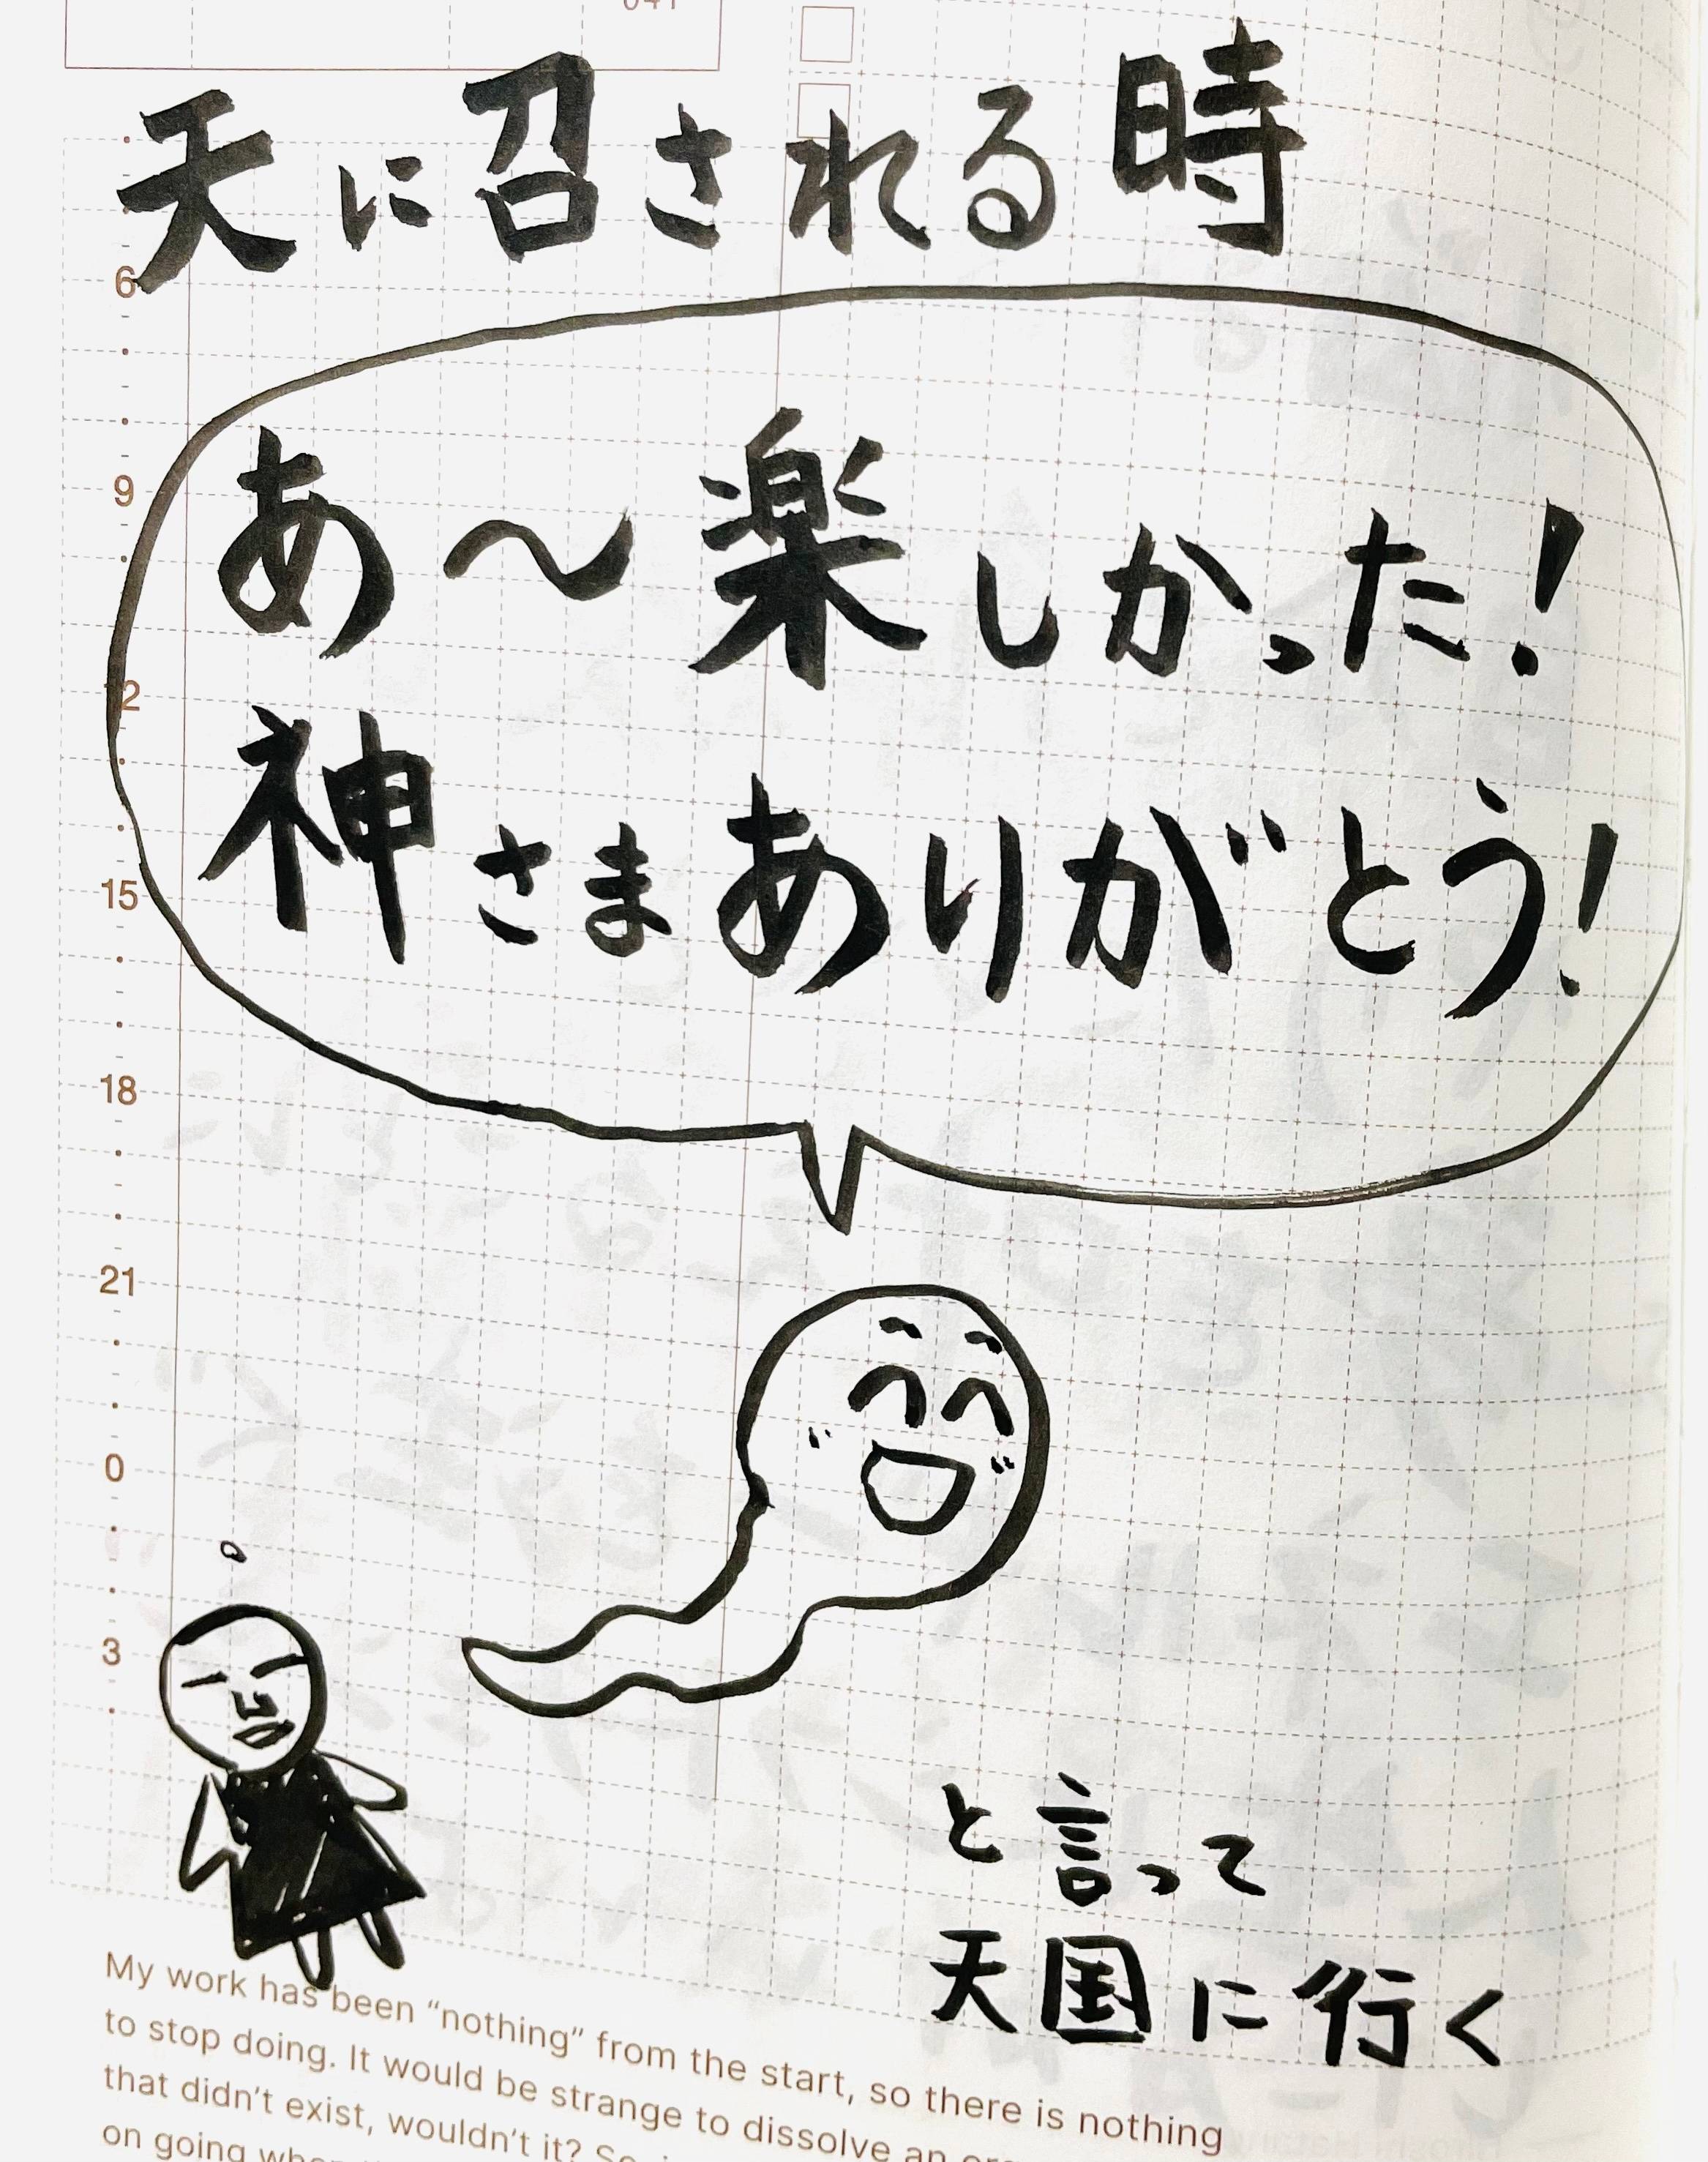 天に召される時
あ〜楽しかった！
神さまありがとう！
と言って
天国に行く
6
9
12
15
18
21
0
3
My work has been “nothing” from the start, so there is nothing
to stop doing. It would be strange to dissolve an
that didn’t exist, wouldn’t it? So
on going